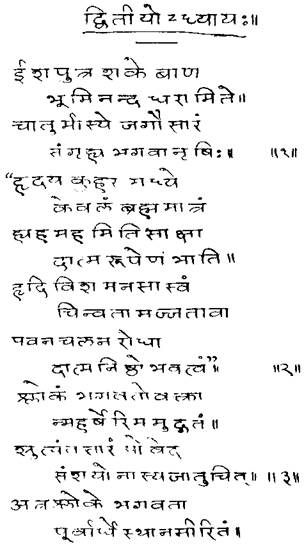 द्वितीयोऽध्यायः॥
ईशपुत्र शके बाण
भूमिनन्द धरामिते॥
चातुर्मास्ये जगौ सारं
संगृह्य भगवानृषिः॥ ॥१॥
"हृदय कुहर मध्ये
केवलं ब्रह्ममात्रं
ह्यहमहमिति साक्षा
दात्मरूपेण भाति॥
हृदि विश मनसा स्वं
चिन्वता मज्जता वा
पवनचलन रोधा
दात्मनिष्ठो भव त्वं" ॥२॥
श्लोकं भगवतो वक्त्रा
न्महर्षेरिममुद्गतं॥
श्रुत्यंतसारं यो वेद
संशयो नास्य जातुचित्॥ ॥३॥
अत्र श्लोके भगवता
पूर्वार्धे स्थानमीरितं॥